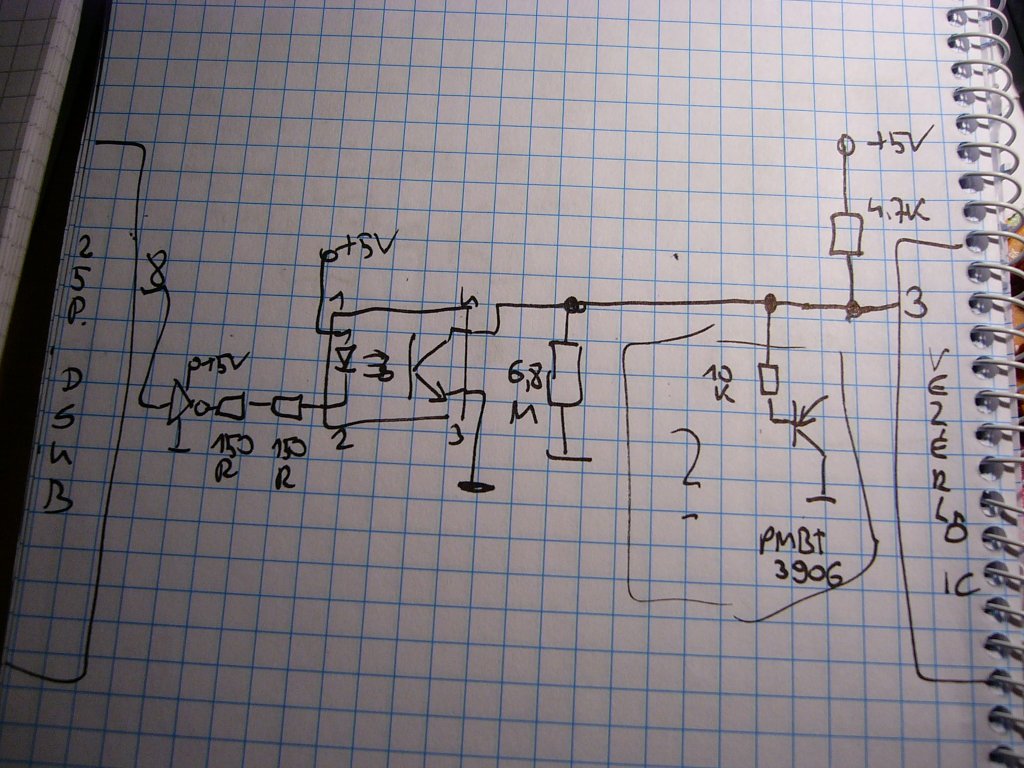 +5V
4,7K
25P. DSUB
8
+5V
1
4
3
+5V
6,8
M
10
K
2
3
150
R
150
R
?
VEZÉRLŐ
IC
PMBT
3906